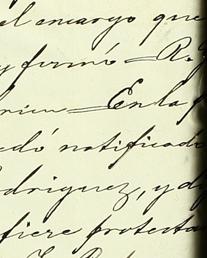 el encargo que
y firmó = R.
En la
edó notificado
odriguez, y d
fiere protesta